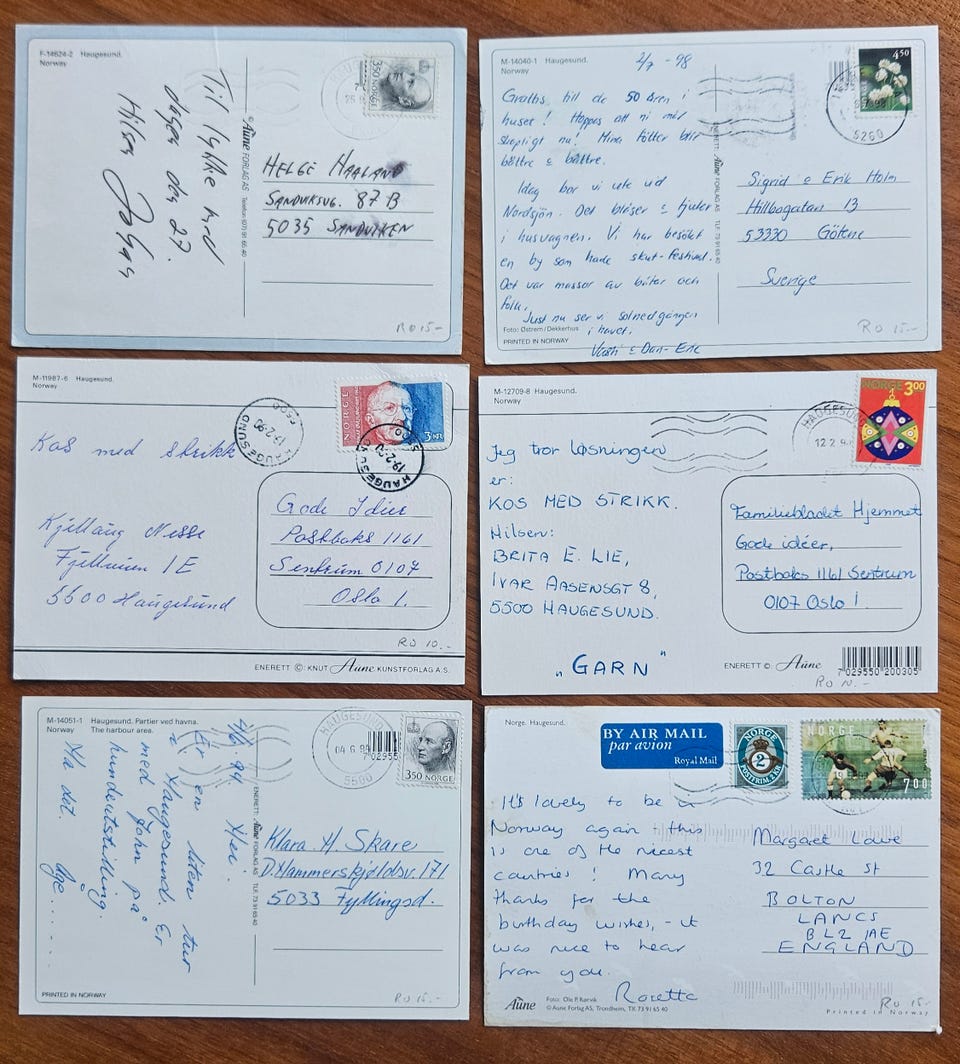 F-14624-2 Haugesund.
Norway
Til lykke med
dagen den 27.
Hilsen
© Aune FORLAG AS Telefon (07) 91 65 40
350 NORGE
HELGE HAALAND
SANDVIKSVG. 87 B
5035 SANDVIKEN
RO 15.-
M-14040-1 Haugesund.
Norway
2/7 -98
Grattis till de 50 åren i
huset! Hoppas att ni mår
skapligt nu! Mina fötter blir
bättre o bättre.
Idag bor vi ute vid
Nordsjön. Det blåser o tjuter
i husvagnen. Vi har besökt
en by som hade skut-festival.
Det var massor av båtar och
folk.
Just nu ser vi solnedgången
i havet.
Dan-Eric
Foto: Østrem/Dekkerhus
PRINTED IN NORWAY
ENERETT: Aune FORLAG AS TLF. 73 91 65 40
4 50
5260
Sigrid o Erik Holm
Hillbogatan 13
53330 Götene
Sverige
RO 15.-
M-11987-6 Haugesund.
Norway
Kos med strikk
Kjellaug Nesse
5500 Haugesund
HAUGESUND
19-2-90
5500
NORGE
HAUGESUND
19-2-90
Gode Idier
Postboks 1161
Sentrum 0107
Oslo 1.
RO 10.-
ENERETT ©: KNUT Aune KUNSTFORLAG A.S.
M-12709-8 Haugesund.
Norway
Jeg tror løsningen
er:
KOS MED STRIKK.
Hilsen:
BRITA E. LIE,
IVAR AASENSGT 8,
5500 HAUGESUND.
"GARN"
HAUGESUND
12 2 9
NORGE 3.00
Familiebladet Hjemmet
Gode idéer,
Postboks 1161 Sentrum
0107 Oslo 1
ENERETT ©: Aune
7 029550 200305
RO 10.-
M-14051-1 Haugesund. Partier ved havna.
Norway The harbour area.
4/6. 94 Hei.
Er en liten tur
i Haugesund. Er
med John på
hundeutstilling.
Ha det.
Åge.....
PRINTED IN NORWAY
ENERETT: Aune FORLAG AS TLF. 73 91 65 40
HAUGESUND
04 6 94
5500
7 02955
350 NORGE
Klara H. Skare
D.Hammerskjöldsv. 171
5033 Fyllingsd.
RO 15.-
Norge. Haugesund.
BY AIR MAIL
par avion
Royal Mail
NORGE
2
POSTFRIM. 2 KR
NORGE
7 00
It's lovely to be in
Norway again - this
is one of the nicest
countries! Many
thanks for the
birthday wishes, - it
was nice to hear
from you.
Rosetta
Margaret Lowe
32 Castle St
BOLTON
LANCS
BL2 1AE
ENGLAND
Aune
Foto: Ole P. Rørvik
© Aune Forlag AS, Trondheim, TK 73 91 65 40
RO 15-
Printed in Norway